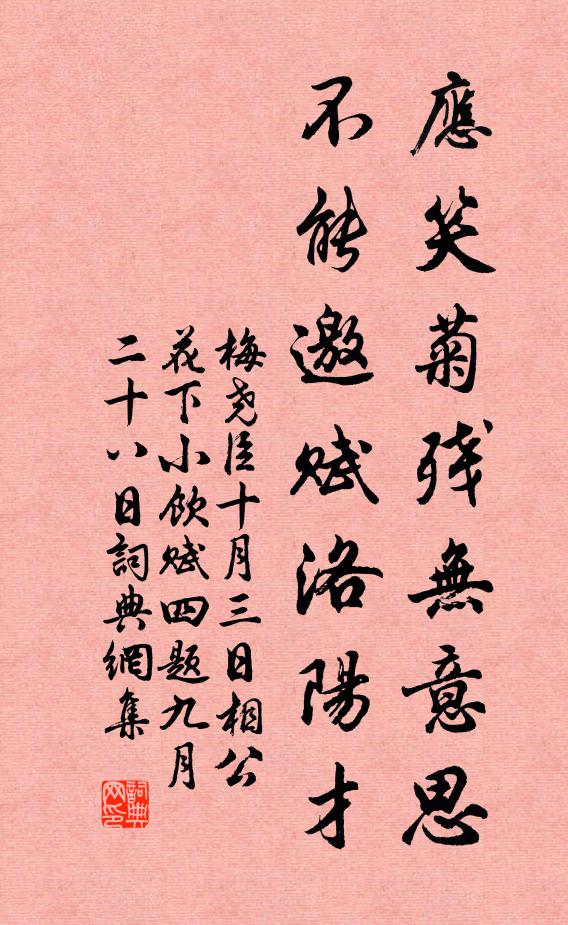 應笑菊殘無意思
不能邀賦洛陽才
梅堯臣十月三日相公
花下小飲賦四題九月
二十八日詞典網集
詞典网印